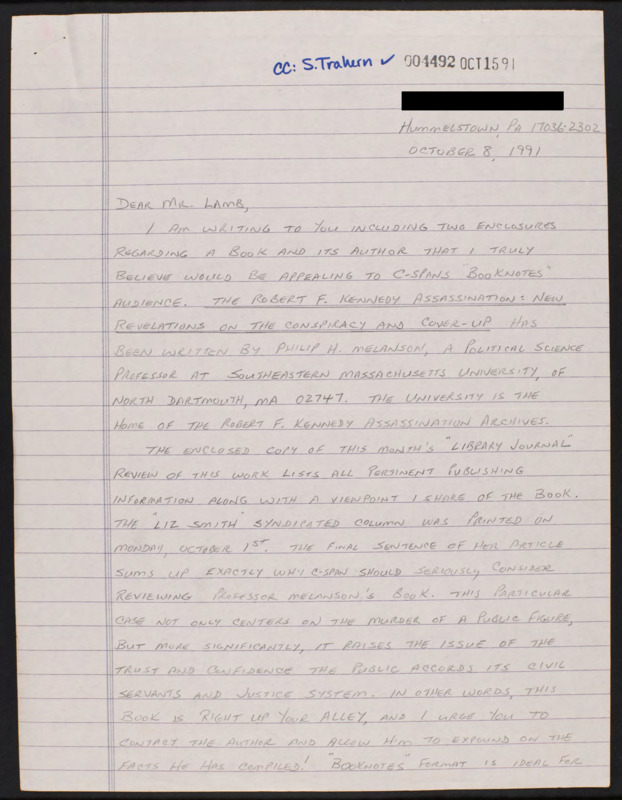 CC: S. Trahern ✓ 004492 OCT 15 91
HUMMELSTOWN, PA 17036-2302
OCTOBER 8, 1991
DEAR MR. LAMB,
I AM WRITING TO YOU INCLUDING TWO ENCLOSURES
REGARDING A BOOK AND ITS AUTHOR THAT I TRULY
BELIEVE WOULD BE APPEALING TO C-SPANS "BOOKNOTES"
AUDIENCE. THE ROBERT F. KENNEDY ASSASSINATION: NEW
REVELATIONS ON THE CONSPIRACY AND COVER-UP HAS
BEEN WRITTEN BY PHILIP H. MELANSON, A POLITICAL SCIENCE
PROFESSOR AT SOUTHEASTERN MASSACHUSETTS UNIVERSITY, OF
NORTH DARTMOUTH, MA 02747. THE UNIVERSITY IS THE
HOME OF THE ROBERT F. KENNEDY ASSASSINATION ARCHIVES.
THE ENCLOSED COPY OF THIS MONTH'S "LIBRARY JOURNAL"
REVIEW OF THIS WORK LISTS ALL PERTINENT PUBLISHING
INFORMATION ALONG WITH A VIEWPOINT I SHARE OF THE BOOK.
THE "LIZ SMITH" SYNDICATED COLUMN WAS PRINTED ON
MONDAY, OCTOBER 1ST. THE FINAL SENTENCE OF HER ARTICLE
SUMS UP EXACTLY WHY C-SPAN SHOULD SERIOUSLY CONSIDER
REVIEWING PROFESSOR MELANSON'S BOOK. THIS PARTICULAR
CASE NOT ONLY CENTERS ON THE MURDER OF A PUBLIC FIGURE,
BUT MORE SIGNIFICANTLY, IT RAISES THE ISSUE OF THE
TRUST AND CONFIDENCE THE PUBLIC ACCORDS ITS CIVIL
SERVANTS AND JUSTICE SYSTEM. IN OTHER WORDS, THIS
BOOK IS RIGHT UP YOUR ALLEY, AND I URGE YOU TO
CONTACT THE AUTHOR AND ALLOW HIM TO EXPOUND ON THE
FACTS HE HAS COMPILED! "BOOKNOTES" FORMAT IS IDEAL FOR